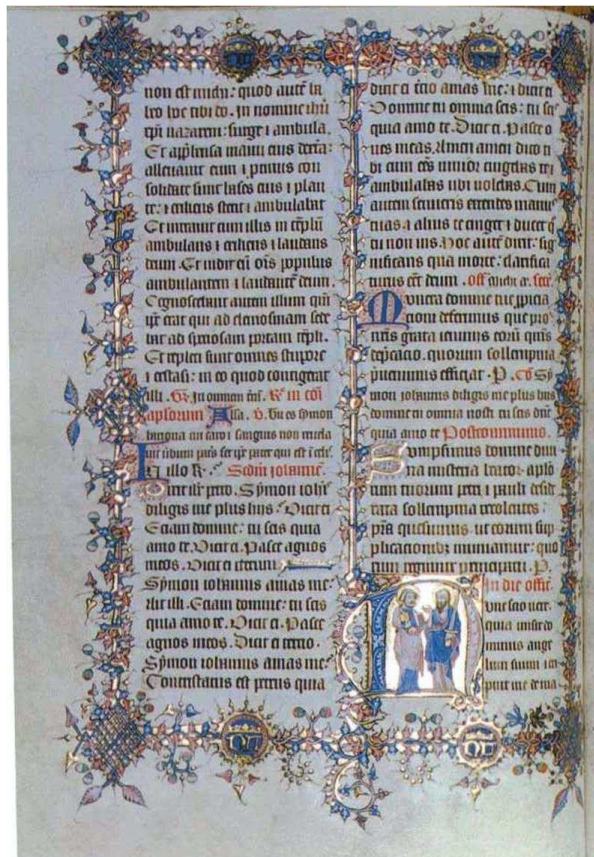 non est michi: quod autē ha
beo hoc tibi do. In nomine ihū
xpī nazareni: surge i ambula.
Et app̄hensa manu eius dextā:
alleuauit eum i protinus con
solidate sunt bases eius i plan
te: i exiliens stetit i ambulabat
Et intrauit cum illis in tēplū
ambulans i exiliens i laudans
deum. Et uidit eū oīs populus
ambulantem i laudantē deum.
Cognoscebant autem illum qm̄
ip̄e erat qui ad elemosinam sede
bat ad speciosam portam tēpli.
Et repleti sunt omnes stupore
i extasi: in eo quod contigerat
illi. Gr̄. In omnem tr̄ā. R̄. in cō
apl̓sorum Alla. v. Tu es symon
bariona
In illo t̄. Scdm̄ iohannē.
Dixit ih̄c petro. Symon ioh̄is
diligis me plus hijs. Dicit ei
Eciam domine: tu scis quia
amo te. Dicit ei. Pasce agnos
meos. Dicit ei iterum
Symon iohannis amas me:
Ait illi. Eciam domine: tu scis
quia amo te. Dicit ei. Pasce
agnos meos. Dicit ei tercio.
Symon iohannis amas me:
Contristatus est petrus quia
dixit ei tercio amas me: i dicit ei
Domine tu omnia scis: tu scis
quia amo te. Dicit ei. Pasce o
ues meas. Amen amen dico ti
bi cum eēs iunior cingebas te i
ambulabas ubi uolebas. Cum
autem senueris extendes manus
tuas i alius te cinget i ducet q̄
tu non uis. Hoc autē dixit: sig
nificans qua morte: clarifica
turus eēt deum. off̄ secr̄.
Munera domine
cioni deferimus que pro
grata ieiunijs eorū qm̄s
quorum sollempnia
preuenimus efficiat. P. Cō Sy
mon iohannis diligis me plus hijs
domine tu omnia nosti tu scis dn̄e
quia amo te Postcommunio.
Sumpsimus domine diui
na misteria beatorum apl̓o
rum tuorum petri i pauli desid
rata sollempnia recolentes.
pr̄a quesumus ut eorum sup
plicacionibus muniamur: quo
rum regimur principatu. P.
In die officiū
Nunc scio uere
quia misit do
minus ange
lum suum i eri
puit me de ma